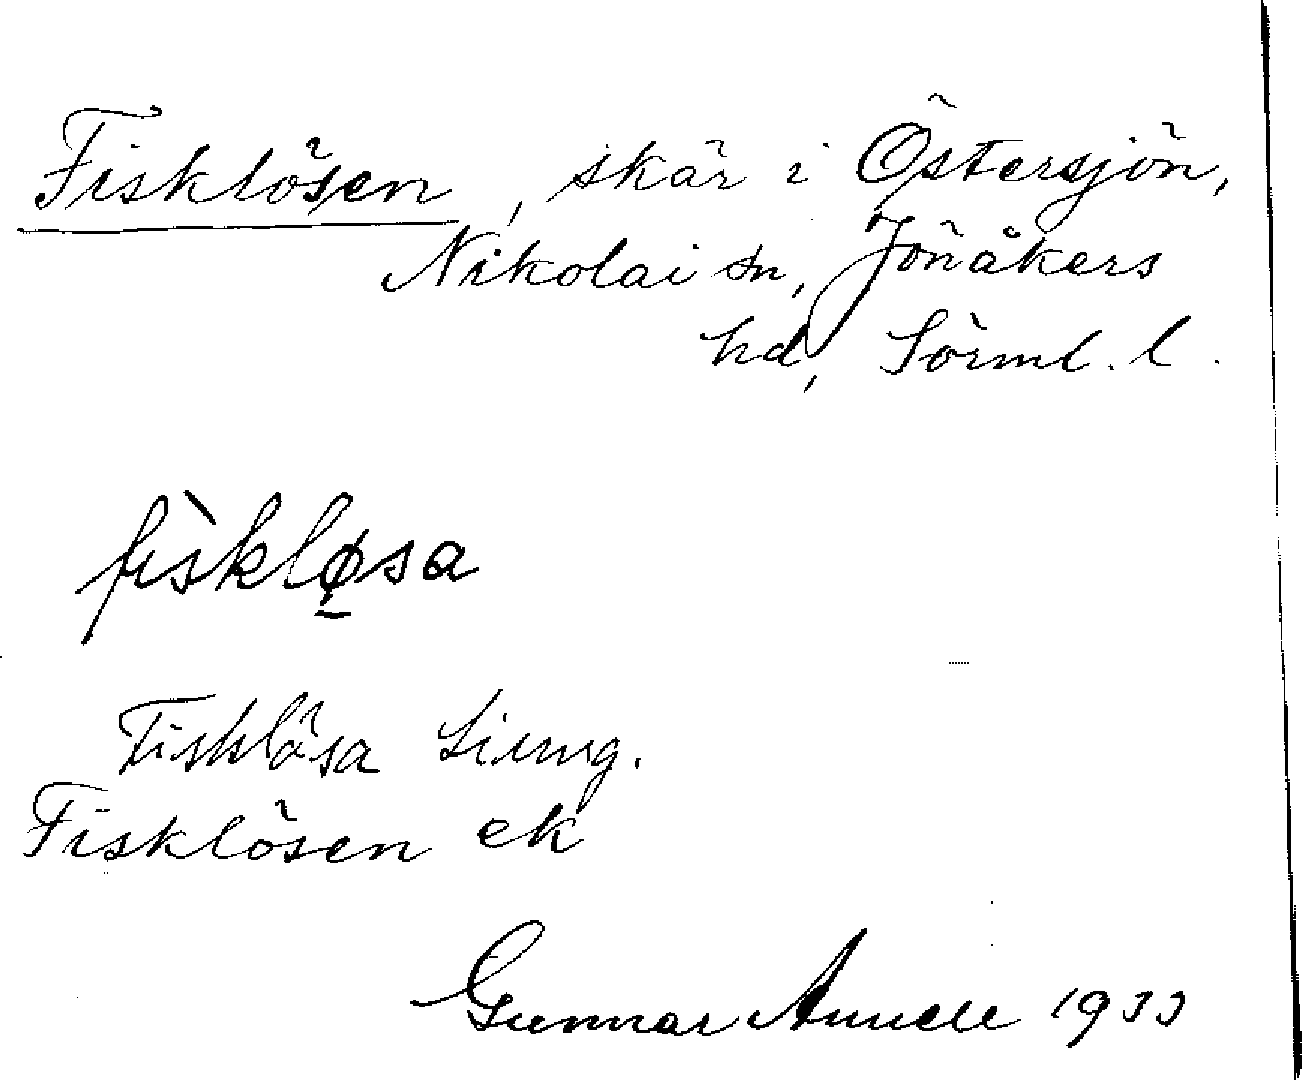 Fisklösen, skär i Östersjön,
Nikolai sn, Jönåkers
hd, Sörml. l.
fìskløsa
Fisklösa Ljung.
Fisklösen ek
Gunnar Annell 1933